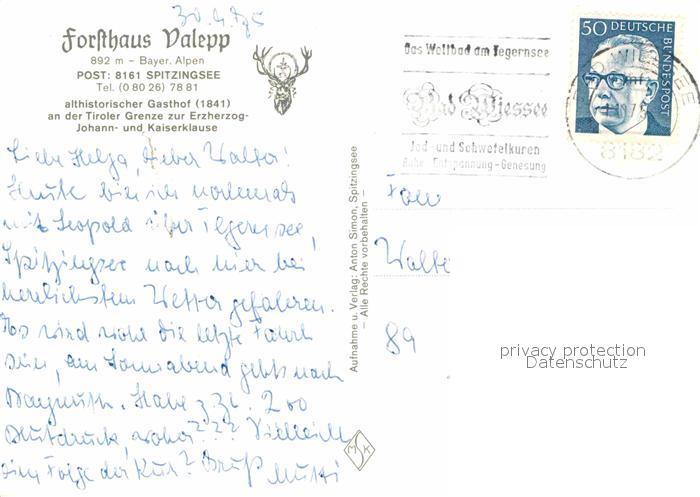 30.4.75
Forsthaus Valepp
892 m – Bayer. Alpen
POST: 8161 SPITZINGSEE
Tel. (0 80 26) 78 81
althistorischer Gasthof (1841)
an der Tiroler Grenze zur Erzherzog-
Johann- und Kaiserklause
Liebe Helga, lieber Walter!
Heute bin ich nochmals
mit Leopold über Tegernsee,
Spitzingsee nach hier bei
herrlichstem Wetter gefahren.
Es wird wohl die letzte Fahrt
sein, am Sonnabend gehts nach
Bayreuth. Habe z.Zt. 200
Blutdruck woher??? Vielleicht
eine Folge der Kur? Gruß Mutti
Aufnahme u. Verlag: Anton Simon, Spitzingsee
– Alle Rechte vorbehalten –
MSK
Das Weltbad am Tegernsee
Bad Wiessee
Jod- und Schwefelkuren
Ruhe - Entspannung - Genesung
50 DEUTSCHE
BUNDESPOST
8182
Walte
89
privacy protection
Datenschutz